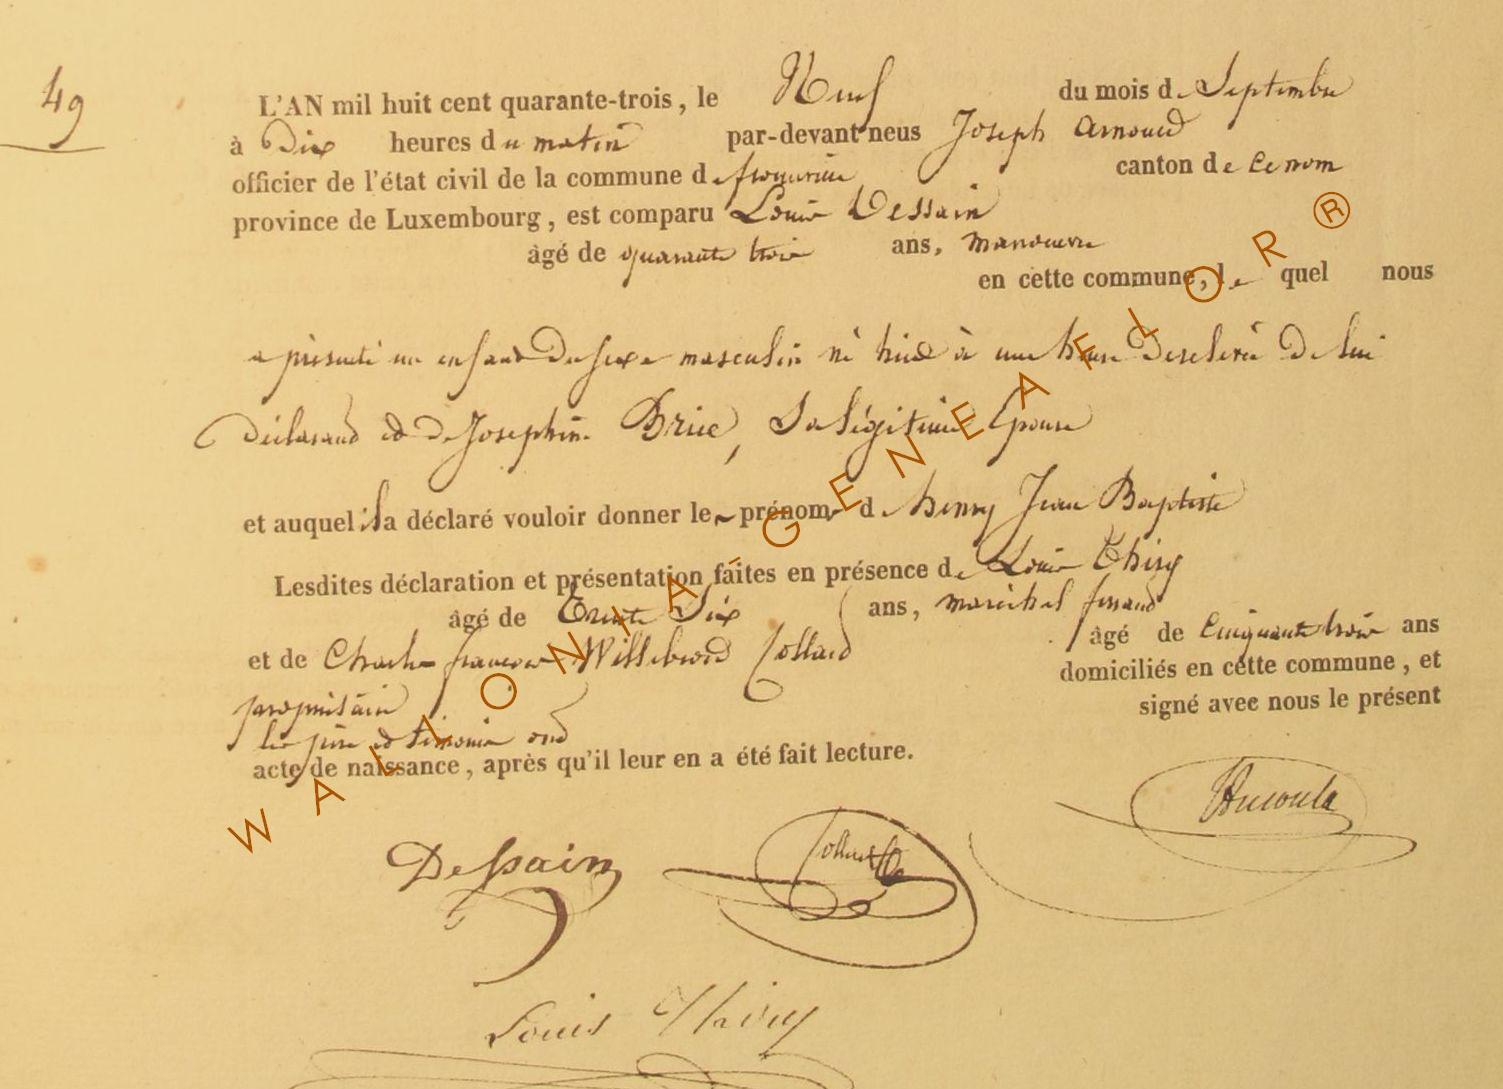 49
L'AN mil huit cent quarante-trois, le Neuf du mois de Septembre
à Dix heures du matin par-devant nous Joseph Arnould
officier de l'état civil de la commune de canton de ce nom
province de Luxembourg, est comparu Louis Dessain
âgé de quarante trois ans, manoeuvre
en cette commune, lequel nous
a présenté un enfant du sexe masculin né à une heure de lui
Déclarant et de Josephine Brice, Sa légitime Epouse
et auquel il a déclaré vouloir donner les prénoms de henry Jean Baptiste
Lesdites déclaration et présentation faites en présence de Louis Thiry
âgé de Trente Six ans, maréchal ferrand
et de Charles françois Willibrord Collard âgé de Cinquante trois ans
propriétaire domiciliés en cette commune, et
les père et témoins ont signé avec nous le présent
acte de naissance, après qu'il leur en a été fait lecture.
Dessain
Collard
Louis Thiry
WALLONIA GENEAFLOR ®